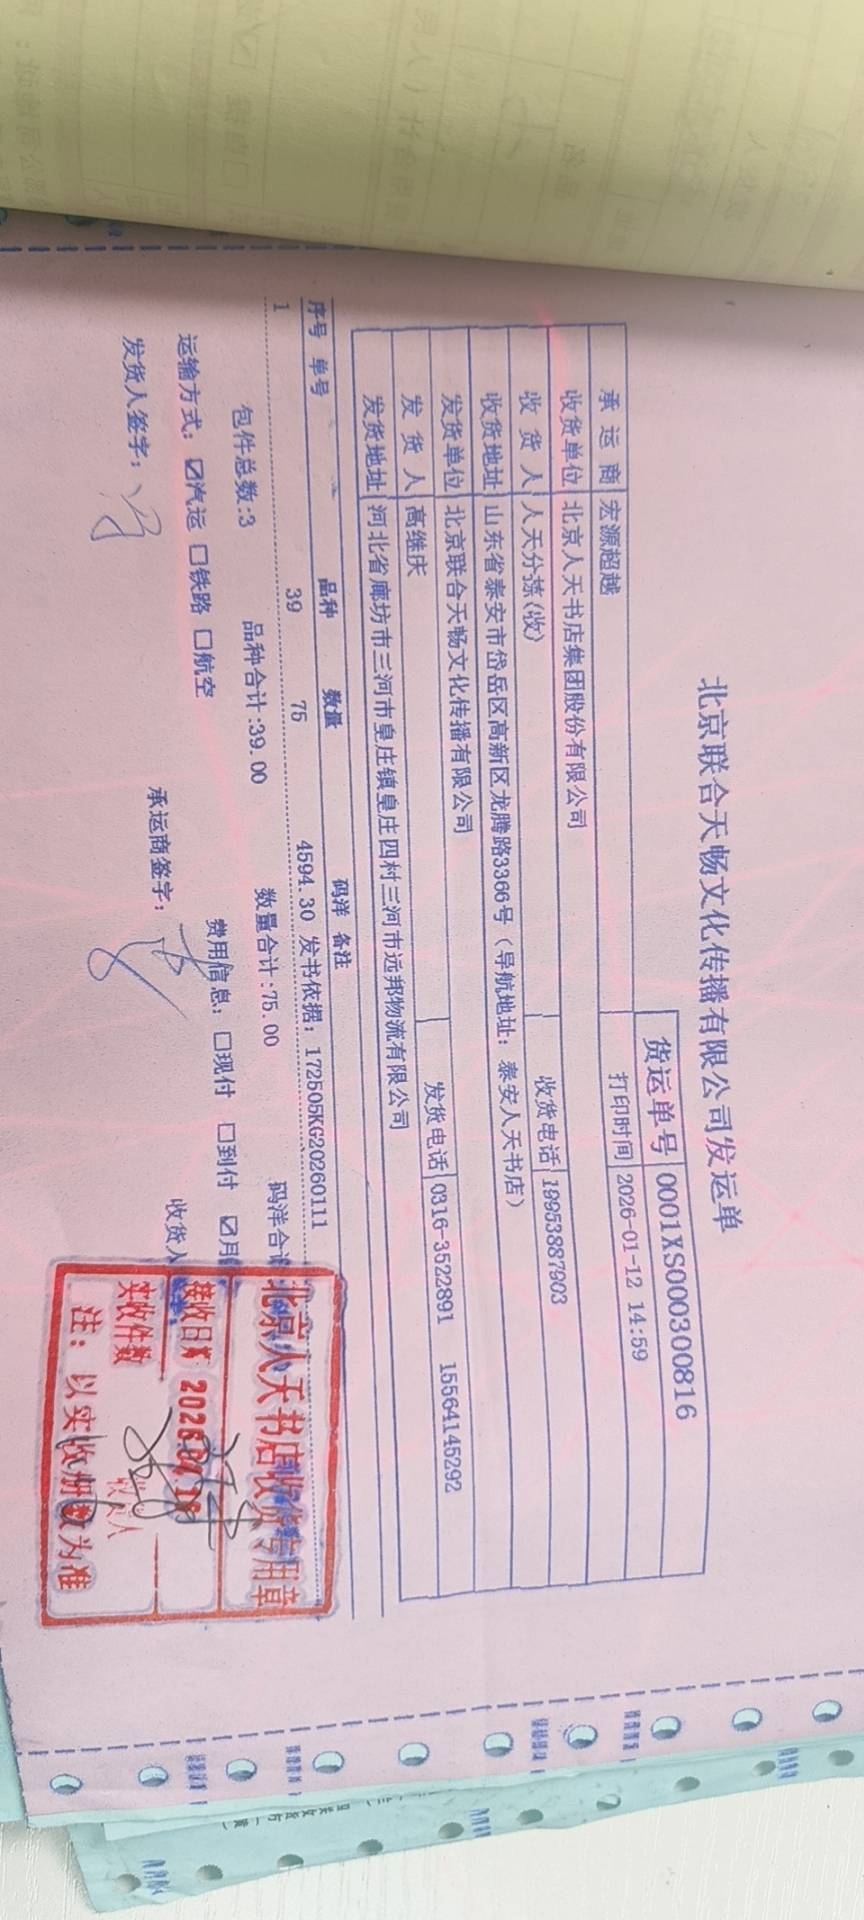 北京联合天畅文化传播有限公司发运单
货运单号 0001XS000300816
承运商 宏源超越 打印时间 2026-01-12 14:59
收货单位 北京人天书店集团股份有限公司
收货人 人天分拣(收) 收货电话 19953887903
收货地址 山东省泰安市岱岳区高新区龙腾路3366号（导航地址：泰安人天书店）
发货单位 北京联合天畅文化传播有限公司
发货人 高继庆 发货电话 0316-3522891 15564145292
发货地址 河北省廊坊市三河市皇庄镇皇庄四村三河市远邦物流有限公司
序号 单号 品种 数量 码洋 备注
1 39 75 4594.30 发书依据：172505KG20260111
包件总数:3 品种合计:39.00 数量合计:75.00 码洋合计
运输方式：☑汽运 □铁路 □航空 费用信息：□现付 □到付 ☑月
发货人签字： 承运商签字： 收货人
北京人天书店收货专用章
接收日期
实收件数 收货人
注：以实收册数为准